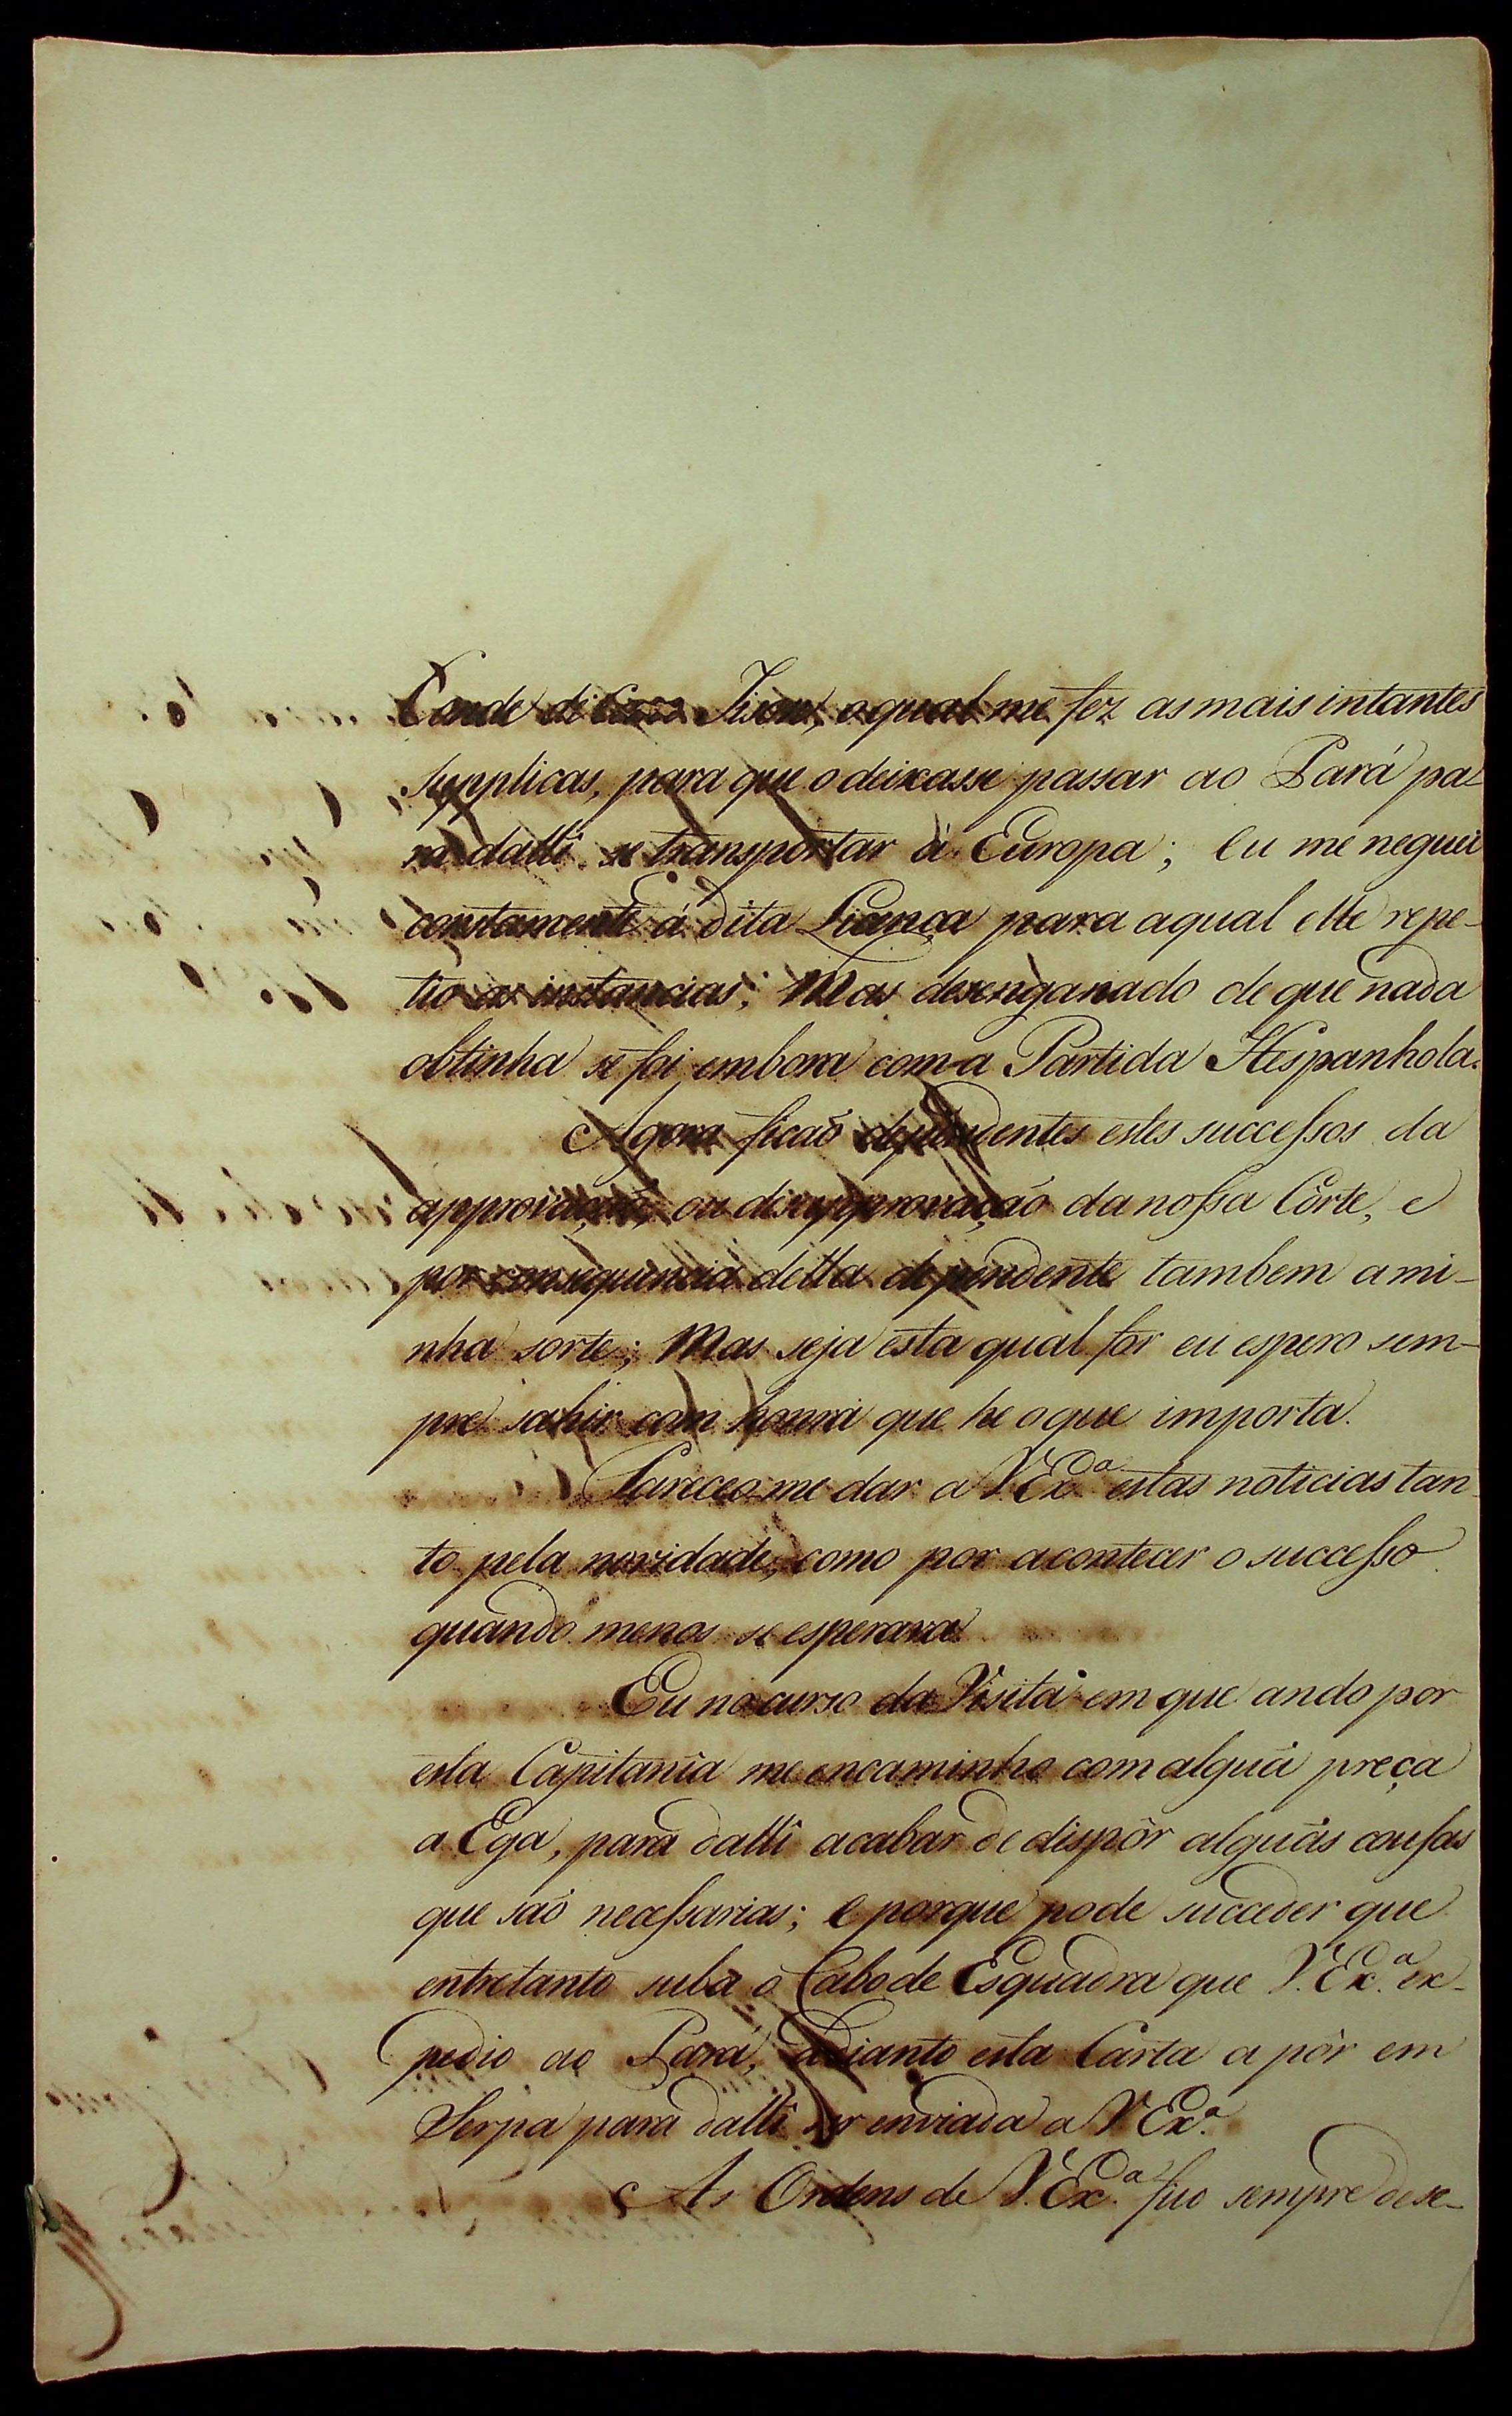 Conde de Casa Jison, oqual me fez as mais intantes
supplicas, para que o deixasse passar ao Pará pa-
ra dallî se transportar á Europa; Eu me neguei
constamente á dita Licança para aqual elle repe-
tio as instancias; Mas desenganado de que nada
obtinha se foi embora com a Partida Hespanhola.
Agora ficaõ dependentes estes successos da
approvaçaõ, ou disapprovaçaõ da nossa Côrte, e
por consequencia della dependente tambem a mi-
nha sorte; Mas seja esta qual for eu espero sem-
pre sahir com honra que he o que importa.
Pareceo me dar a V. Exª. estas noticias tan-
to pela novidade, como por acontecer o successo
quando menos se esperava.
Eu no curso da Visita em que ando por
esta Capitania me encaminho com alguã preça
a Ega, para dallî acabar de dispôr alguãs cousas
que saõ necessarias; e porque pode succeder que
entretanto suba o Cabo de Esquadra que V. Exª. ex-
pedio ao Pará, adianto esta Carta a pôr em
Serpa para dallî ser enviada a V. Exª.
As Ordens de V. Exª. fico sempre dese-